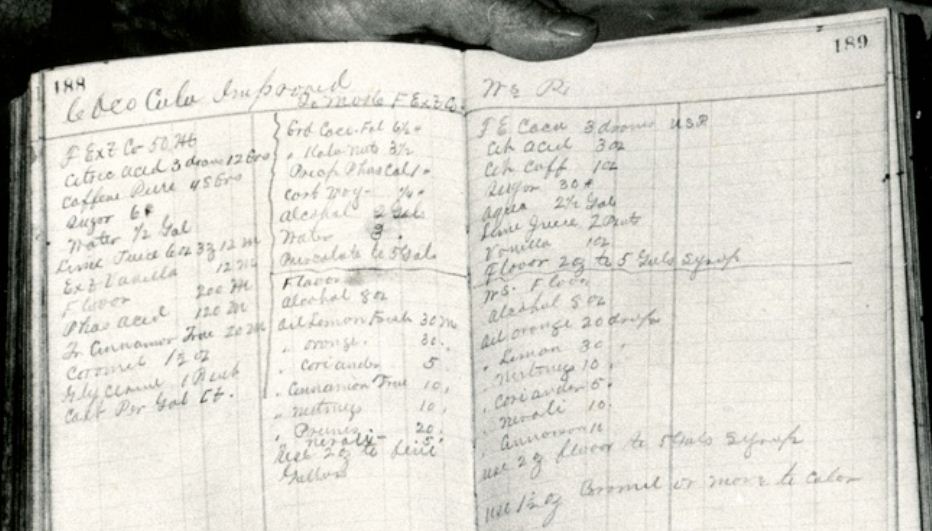 188
CocoCola Improved
F Ext Co 50 M
Citric acid 3 drams 12 Grs
Caffene Pure 45 Grs
Sugar 6 #
Water 1/2 Gal
Lime Juice 6 oz 3 ʒ 12 M
Ext Vanilla 12 M
Flavor 200 M
Phos acid 120 M
Tr Cinnamon True 20 M
Coromel 1 1/2 oz
Glycerine 1 Pint
Cost Per Gal
To Make F Ext Co.
Grd Coco
" Kola nuts 3 1/2
Precip Phos Cal 1 "
Carb 1/4 "
Alcohol 2 Gals
Water 3 "
Percolate to 5 Gals
Flavor
Alcohol 8 oz
Oil Lemon 30 M
" orange. 30 "
" Coriander 5 "
" Cinnamon True 10 "
" nutmegs 10 "
" 20 "
" neroli - 5 "
use 2 oz to five
Gallons
189
F E Coca 3 drams USP
Cit acid 3 oz
Cit Caff 1 oz
Sugar 30 #
aqua 2 1/2 Gal
Lime Juice 2 Pints
Vanilla 1 oz
Flavor 2 oz to 5 Gals Syrup
Ws. Flavor
Alcohol 8 oz
Oil orange 20 drops
" Lemon 30 "
" nutmegs 10 "
" Coriander 5 "
" neroli 10 "
" Cinnamon
use 2 oz flavor to 5 Gals Syrup
use 1 1/2 oz or more to color